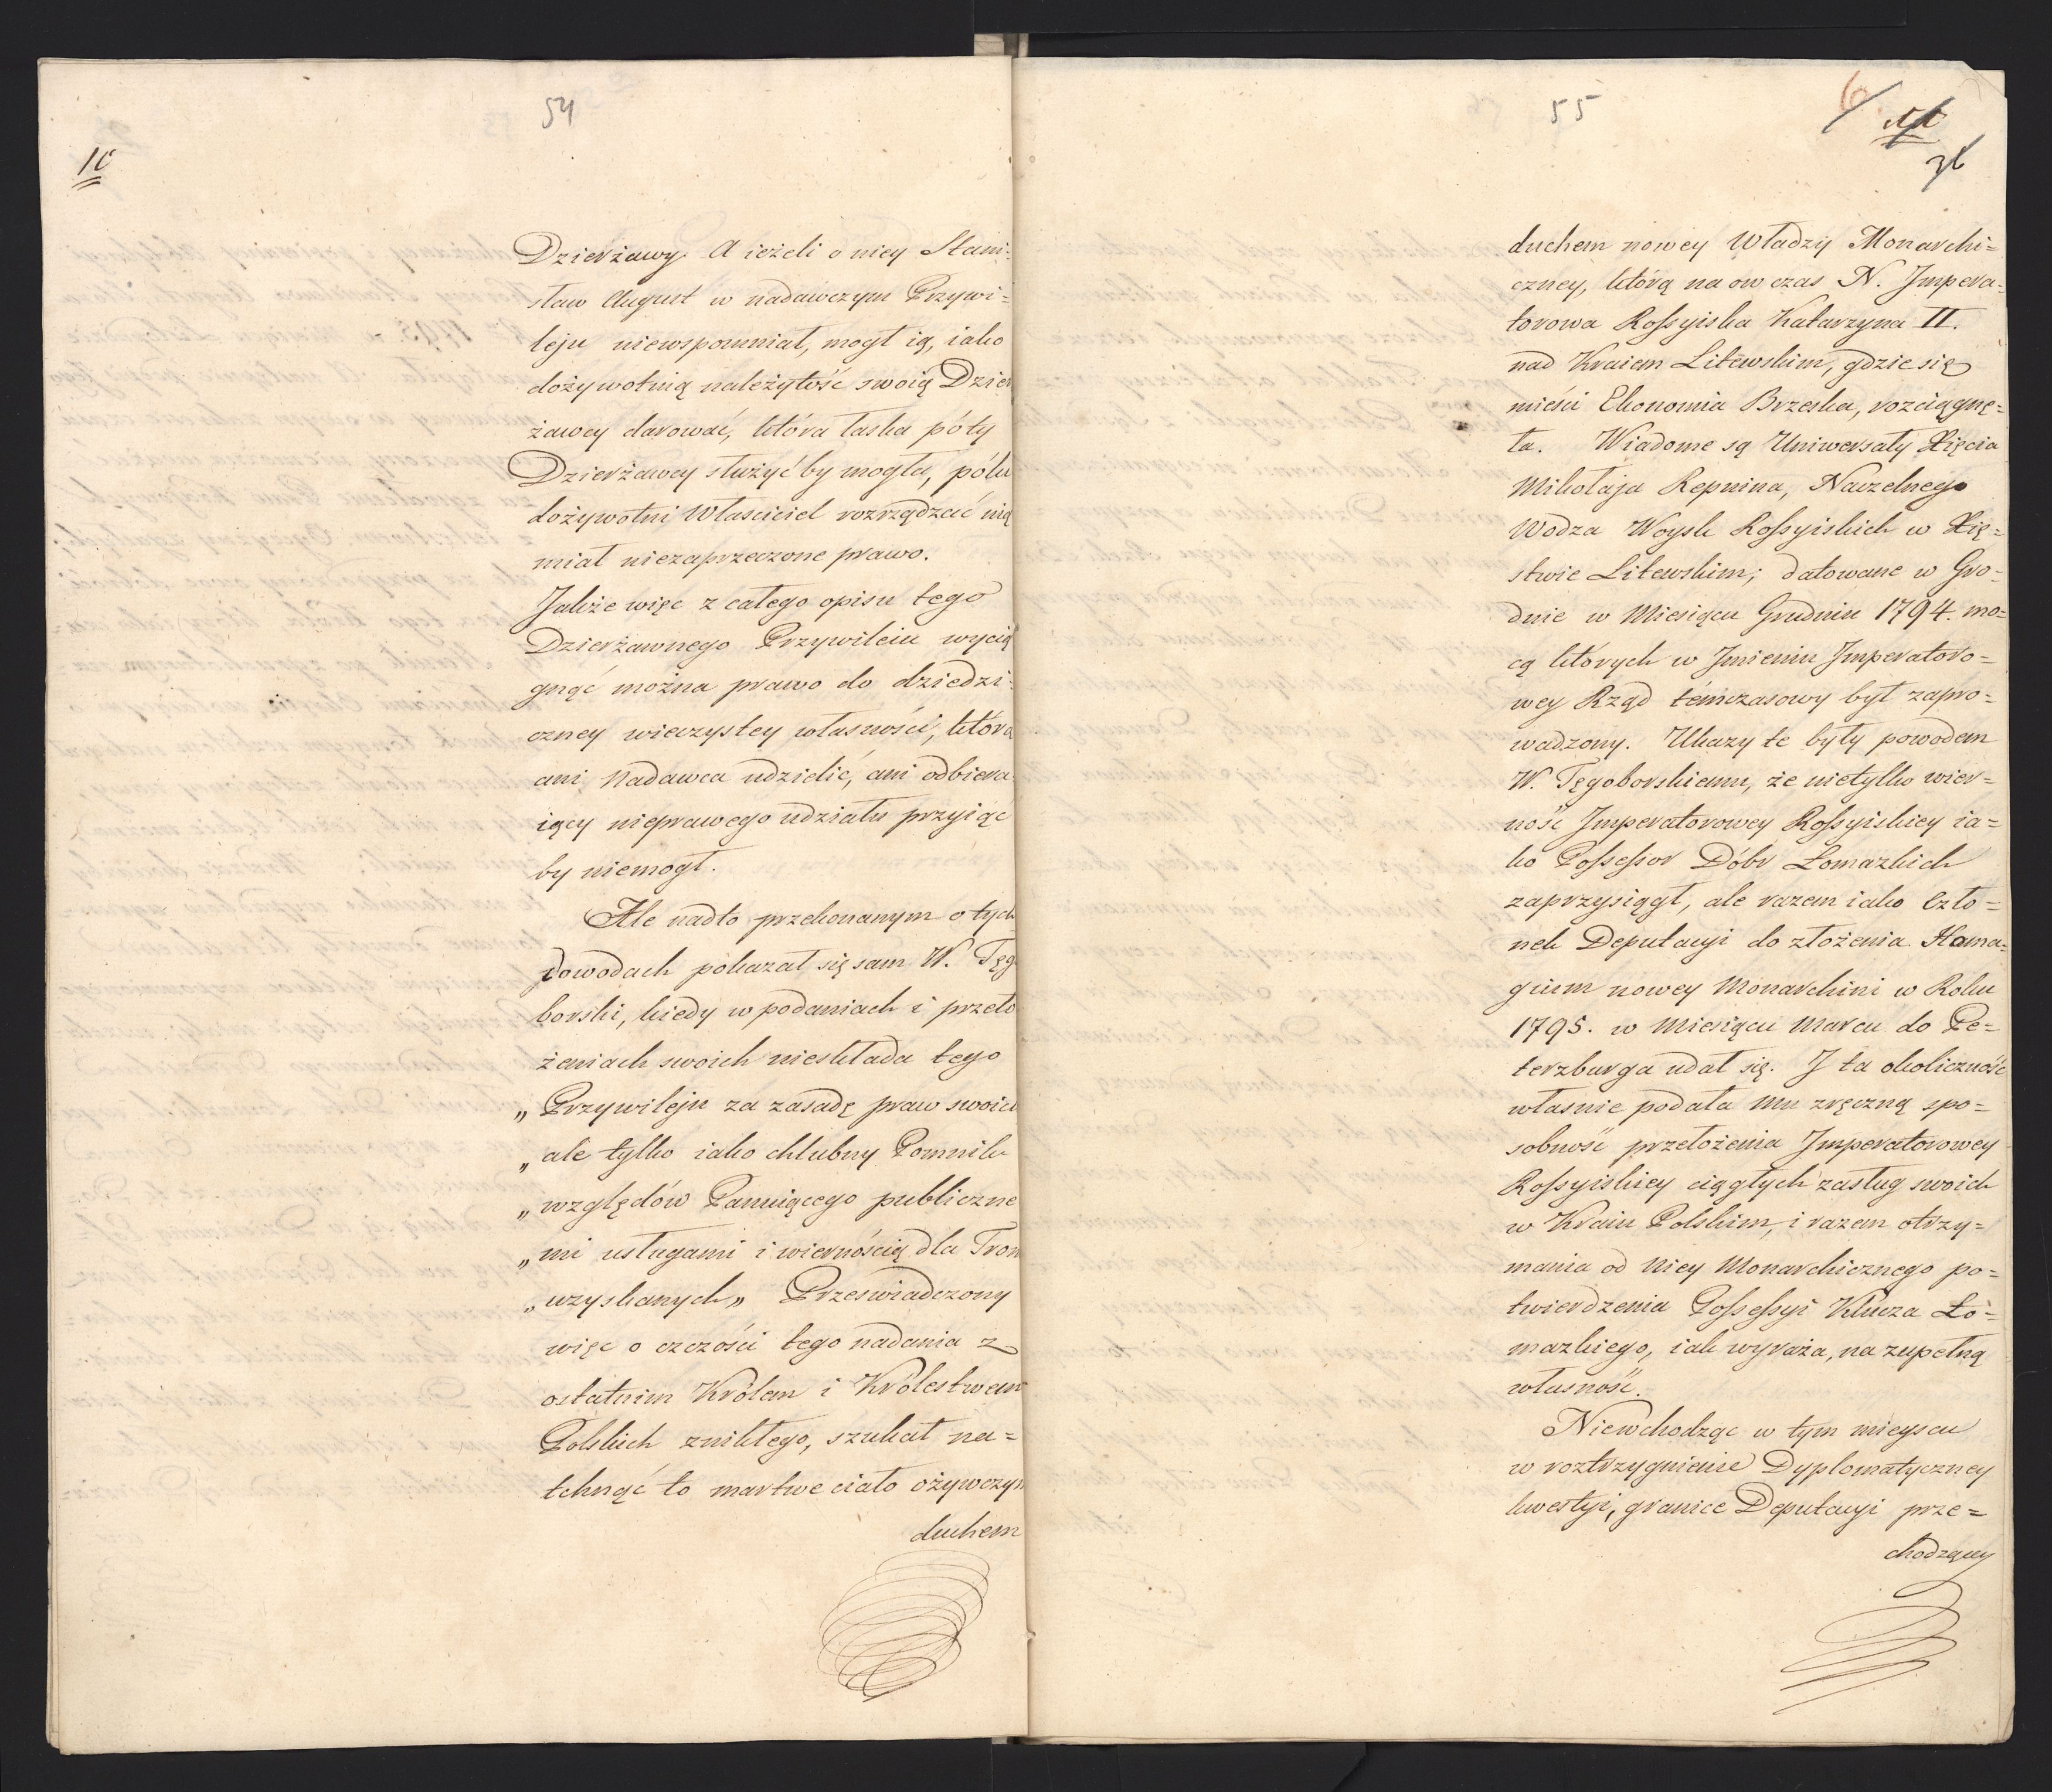 54
10
Dzierżawy. A ieżeli o niey Stani-
sław August w nadawczym Przywi-
leju niewspomniał, mogł ią, iako
dożywotnią należytość swoią Dzier
żawcy darować, która łaska póty
Dzierżawcy służyć by mogła, póki
dożywotni Właściciel rozrządzać nią
miał niezaprzeczone prawo.
Jakże więc z całego opisu tego
Dzierżawnego Przywileiu wycią
gnąć można prawo do dziedzi-
czney wieczystey własności, którą
ani Nadawca udzielić, ani odbiera
iący nieprawego udziału przyiąć
by niemogł.
Ale nadto przekonanym o tych
dowodach pokazał się sam W. Tęg
borski, kiedy w podaniach i przeło
żeniach swoich nieskłada tego
„ Przywileju za zasadę praw swoich
„ ale tylko iako chlubny Pomnik
„ względów Panuiącego publiczne
„ mi usługami i wiernością dla Tron
„ uzyskanych„ Przeświadczony
więc o czczości tego nadania z
ostatnim Królem i Królestwem
Polskich znikłego, szukał na=
tchnąć to martwe ciało ożywczym
duchem
55
6
11
36
duchem nowey Władzy Monarchi=
czney, którą na ow czas N. Jmpera=
torowa Rossyiska Katarzyna II.
nad Kraiem Litewskim, gdzie się
mieści Ekonomia Brzeska, rozciągnę=
ła. Wiadome są Uniwersały Xięcia
Mikołaja Repnina, Naczelnego
Wodza Woysk Rossyiskich w Xię=
stwie Litewskim; datowane w Gro-
dnie w Miesiącu Grudniu 1794. mo=
cą których w Jmieniu Jmperatoro=
wey Rząd témczasowy był zapro=
wadzony. Ukazy te były powodem
W. Tęgoborskiemu, że nietylko wier=
ność Jmperatorowey Rossyiskiey ia=
ko Possessor Dóbr Łomazkich
zaprzysiągł, ale razem iako Czło=
nek Deputacyi do złożenia Homa=
gium nowey Monarchini w Roku
1795. w Miesiącu Marcu do Pe=
terzburga udał się. J ta okoliczność
własnie podała mu zręczną spo=
sobność przełożenia Jmperatorowey
Rossyiskiey ciągłych zasług swoich
w Kraiu Polskim, i razem otrzy=
mania od Niey Monarchicznego po=
twierdzenia Possessyi Klucza Ło=
mazkiego, iak wyraża, na zupełną
własność.
Niewchodząc w tym mieyscu
w roztrzygnienie Dyplomatyczney
kwestyi, granice Deputacyi prze=
chodzącey